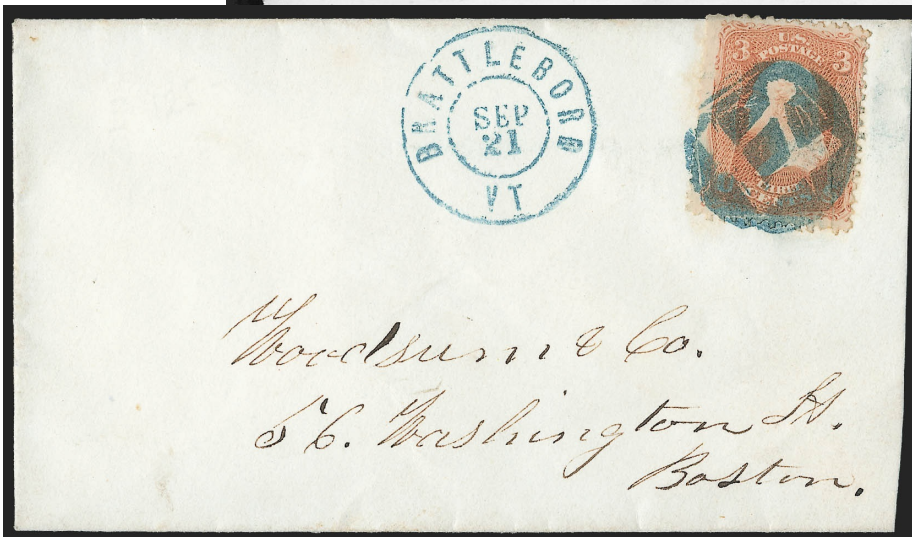 BRATTLEBORO
SEP
21
VT
3 U.S. 3
POSTAGE
THREE
CENTS
Woodsum & Co.
56. Washington St.
Boston.